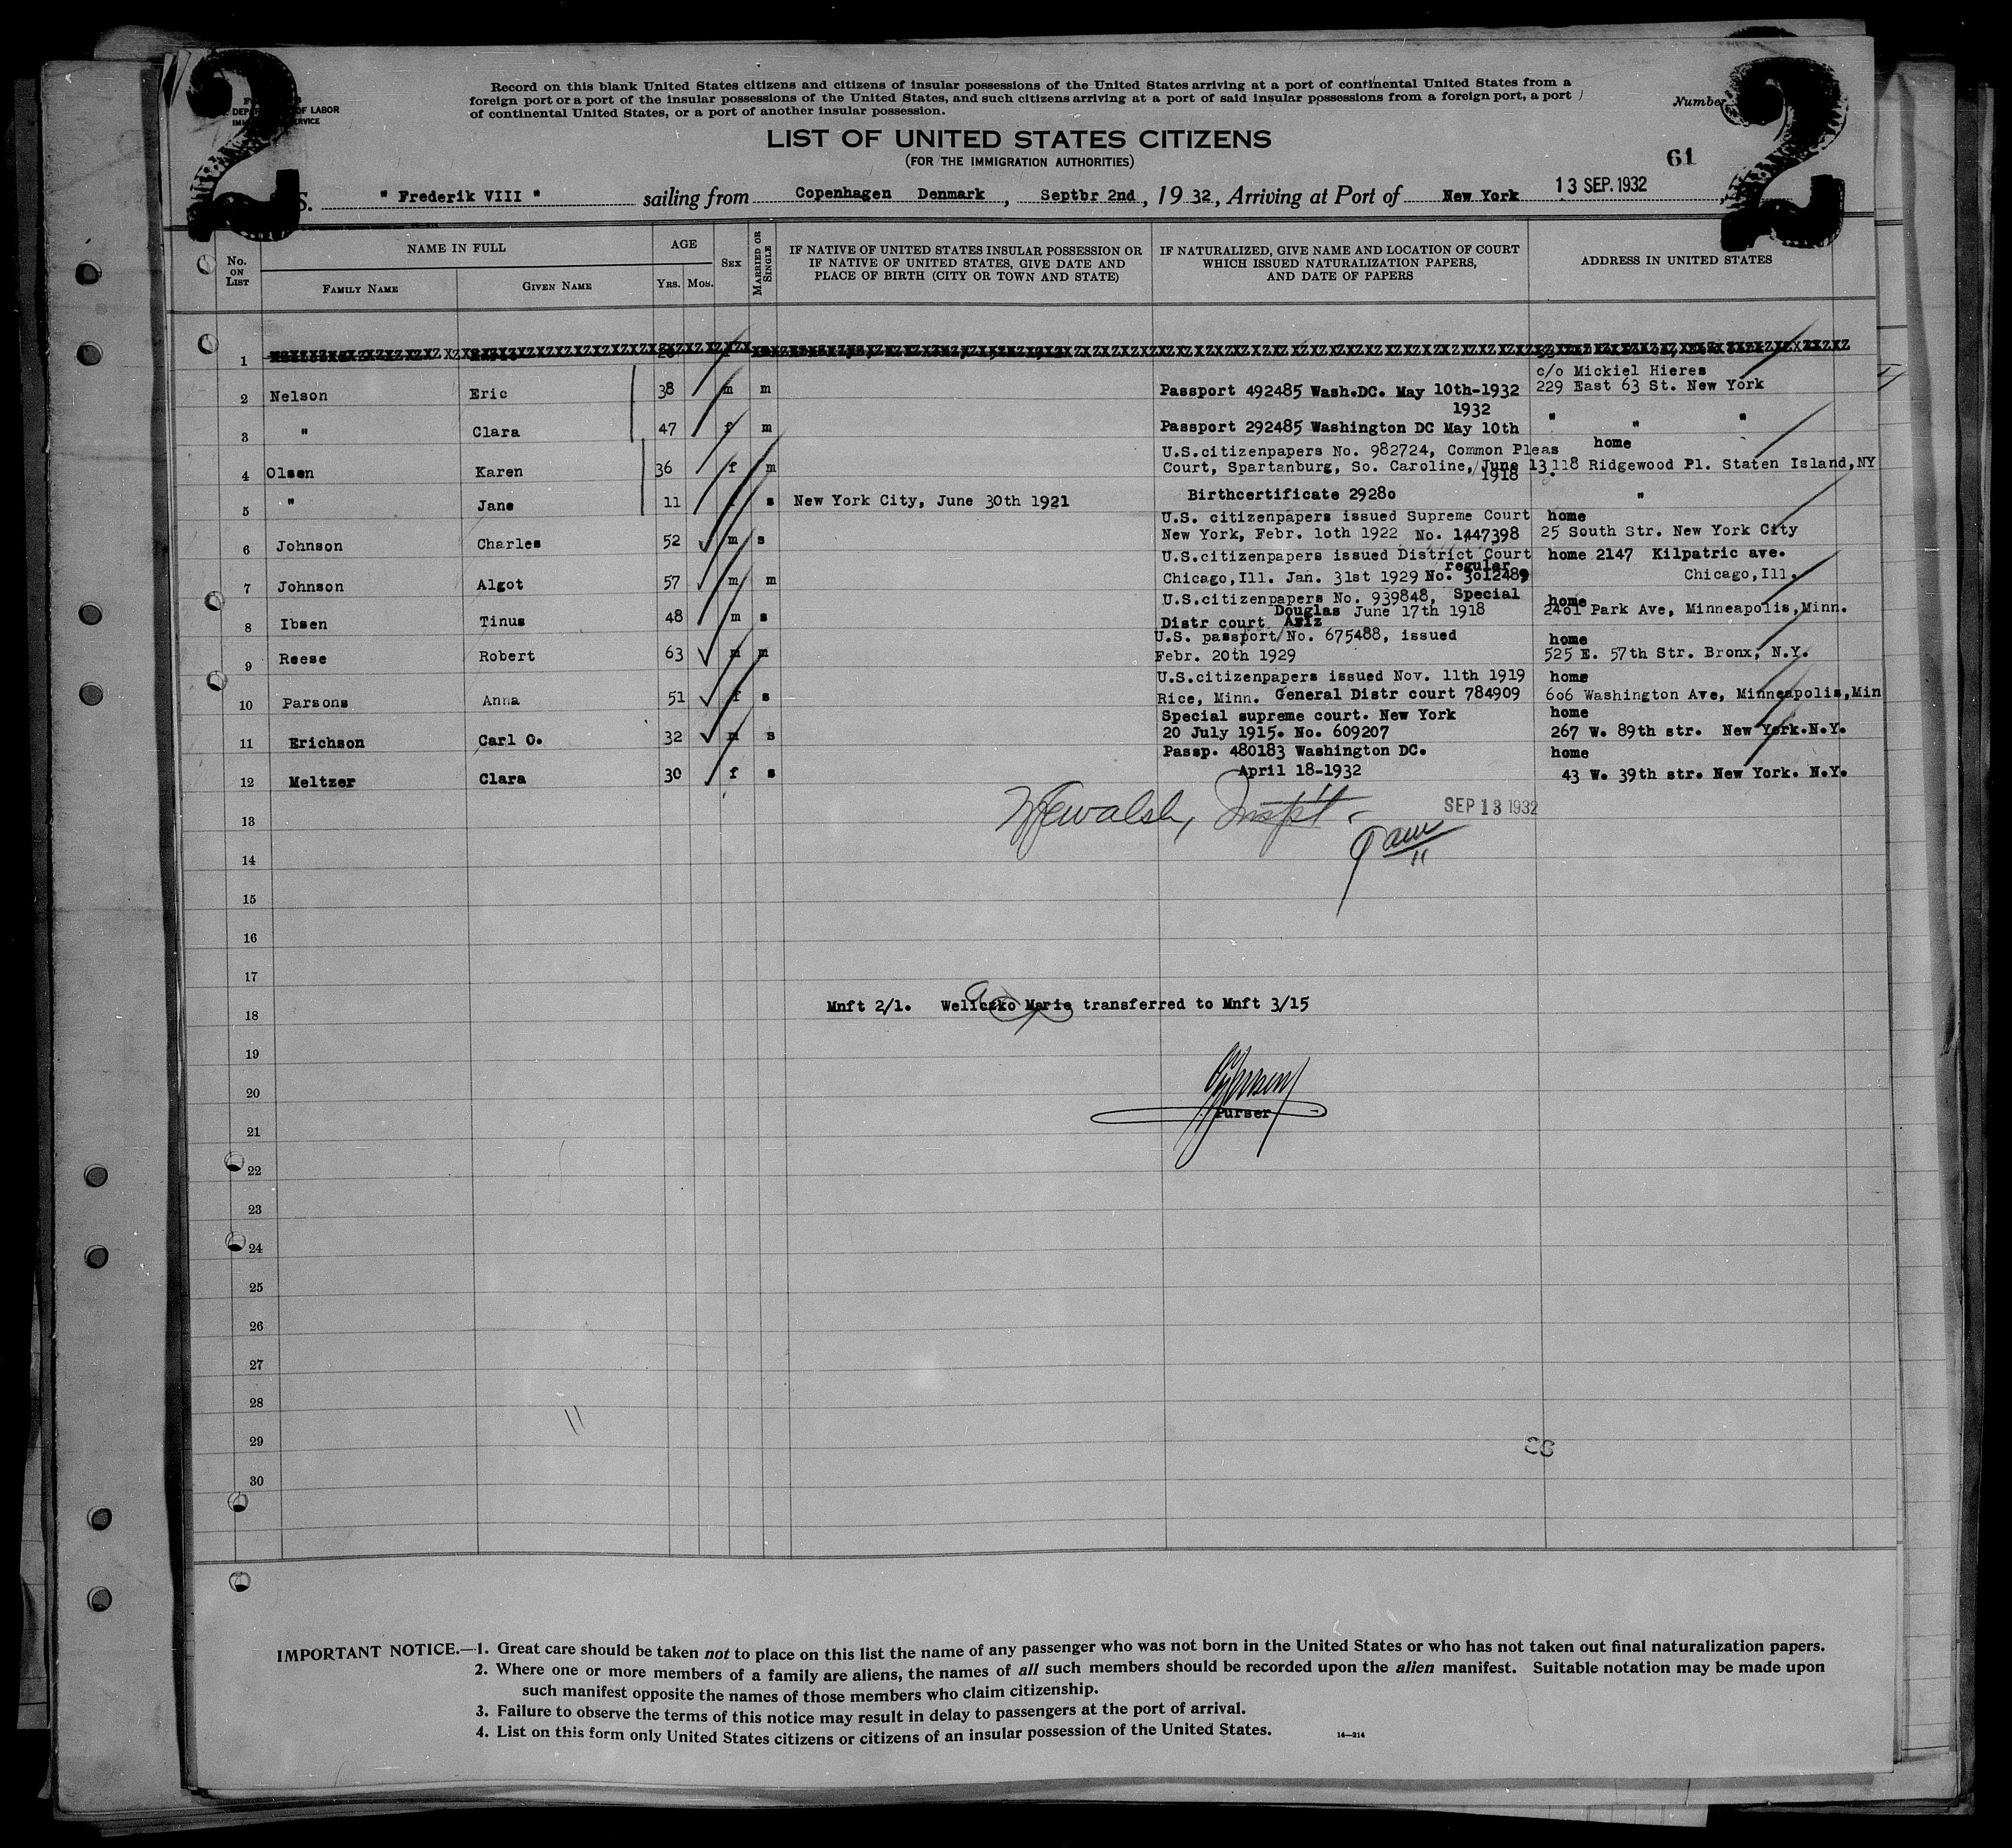 2 2
Record on this blank United States citizens and citizens of insular possessions of the United States arriving at a port of continental United States from a
foreign port or a port of the insular possessions of the United States, and such citizens arriving at a port of said insular possessions from a foreign port, a port
of continental United States, or a port of another insular possession.
OF LABOR
Number
LIST OF UNITED STATES CITIZENS
(FOR THE IMMIGRATION AUTHORITIES)
61
S. " Frederik VIII " sailing from Copenhagen Denmark, Septbr 2nd, 19 32, Arriving at Port of New York 13 SEP. 1932
No. ON LIST
NAME IN FULL
FAMILY NAME
GIVEN NAME
AGE
YRS. MOS.
SEX
MARRIED OR SINGLE
IF NATIVE OF UNITED STATES INSULAR POSSESSION OR
IF NATIVE OF UNITED STATES, GIVE DATE AND
PLACE OF BIRTH (CITY OR TOWN AND STATE)
IF NATURALIZED, GIVE NAME AND LOCATION OF COURT
WHICH ISSUED NATURALIZATION PAPERS,
AND DATE OF PAPERS
ADDRESS IN UNITED STATES
1
c/o Mickiel Hieres
2 Nelson Eric 38 m m Passport 492485 Wash.DC. May 10th-1932 229 East 63 St. New York
1932
3 " Clara 47 f m Passport 292485 Washington DC May 10th " " "
U.S.citizenpapers No. 982724, Common Pleas home
4 Olsen Karen 36 f m Court, Spartanburg, So. Caroline, June 13. 118 Ridgewood Pl. Staten Island,NY
1918
5 " Jane 11 f s New York City, June 30th 1921 Birthcertificate 2928o "
U.S. citizenpapers issued Supreme Court home
6 Johnson Charles 52 m s New York, Febr. 1oth 1922 No. 1447398 25 South Str. New York City
U.S.citizenpapers issued District Court home 2147 Kilpatric ave.
regular
7 Johnson Algot 57 m m Chicago,Ill. Jan. 31st 1929 No. 3o12489 Chicago,Ill.
U.S.citizenpapers No. 939848, Special home
8 Ibsen Tinus 48 m s Distr court Douglas Ariz June 17th 1918 24o1 Park Ave, Minneapolis,Minn.
U.S. passport No. 675488, issued home
9 Reese Robert 63 m m Febr. 20th 1929 525 E. 57th Str. Bronx, N.Y.
U.S.citizenpapers issued Nov. 11th 1919 home
10 Parsons Anna 51 f s Rice, Minn. General Distr court 784909 6o6 Washington Ave, Minneapolis,Min
Special supreme court. New York home
11 Erichson Carl O. 32 m s 20 July 1915. No. 609207 267 W. 89th str. New York.N.Y.
Passp. 480183 Washington DC. home
12 Meltzer Clara 30 f s April 18-1932 43 W. 39th str. New York. N.Y.
13 SEP 13 1932
14
15
16
17
18 Mnft 2/1. Weliczko Marie transferred to Mnft 3/15
19
20
Purser
21
22
23
24
25
26
27
28
29
30
IMPORTANT NOTICE.—1. Great care should be taken not to place on this list the name of any passenger who was not born in the United States or who has not taken out final naturalization papers.
2. Where one or more members of a family are aliens, the names of all such members should be recorded upon the alien manifest. Suitable notation may be made upon
such manifest opposite the names of those members who claim citizenship.
3. Failure to observe the terms of this notice may result in delay to passengers at the port of arrival.
4. List on this form only United States citizens or citizens of an insular possession of the United States. 14—214